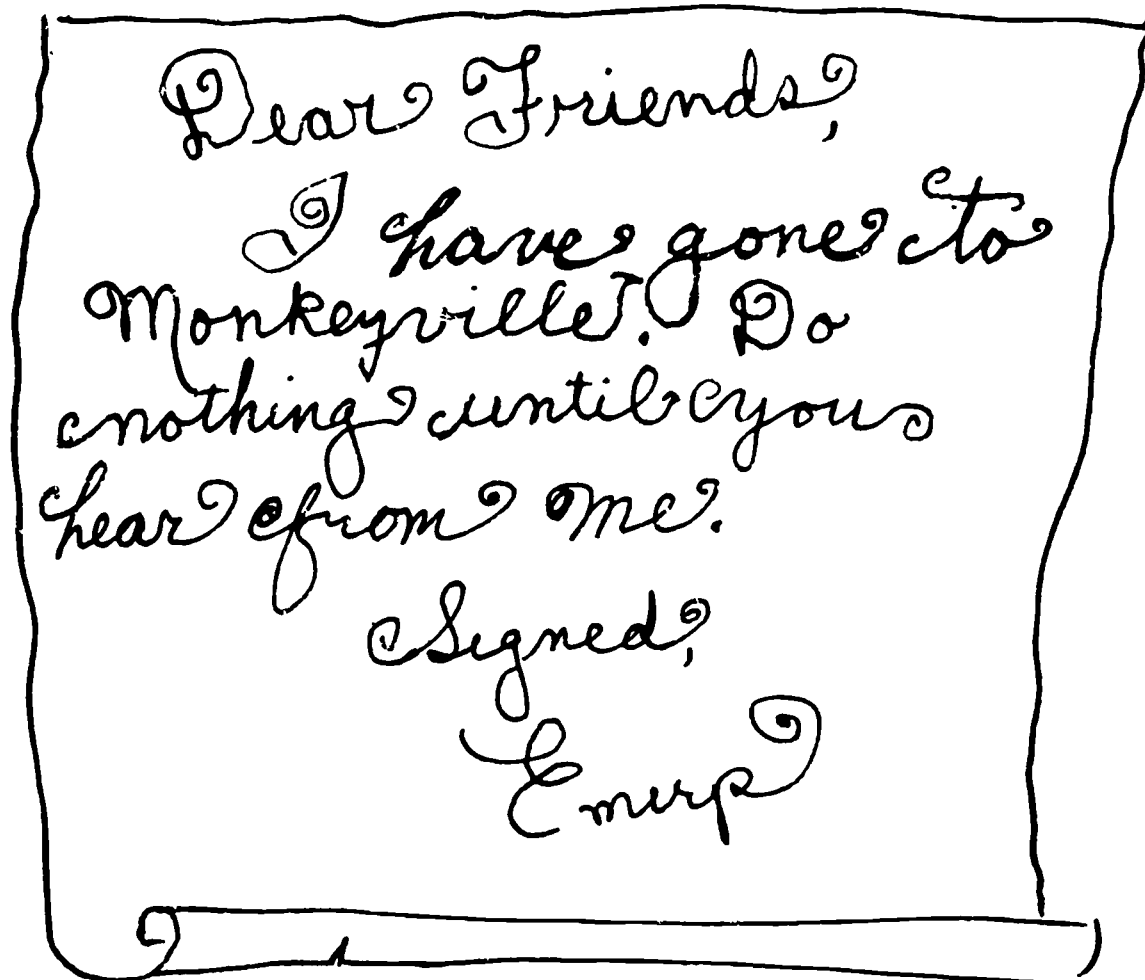 Dear Friends,
I have gone to
Monkeyville. Do
nothing until you
hear from me.
Signed,
Emirp